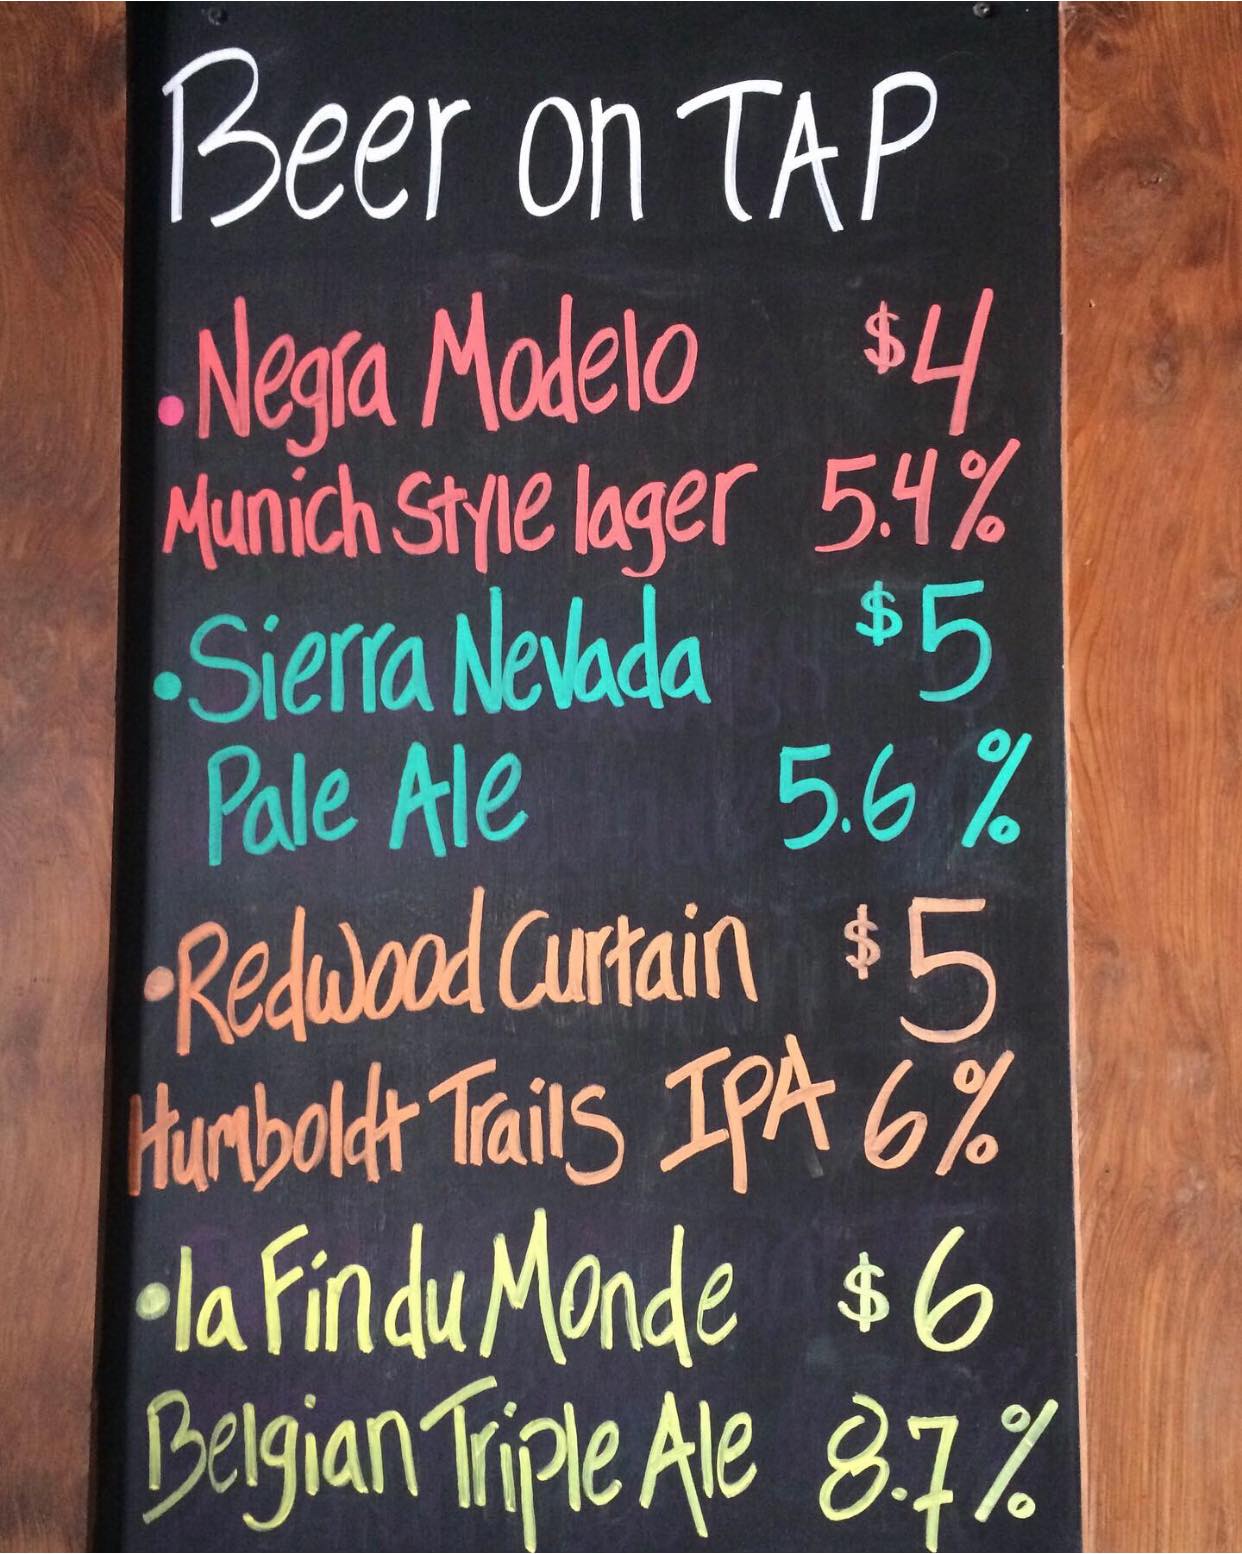 Beer on TAP
• Negra Modelo $4
Munich Style lager 5.4%
• Sierra Nevada $5
Pale Ale 5.6 %
• Redwood Curtain $5
Humboldt Trails IPA 6%
• la Fin du Monde $6
Belgian Triple Ale 8.7%